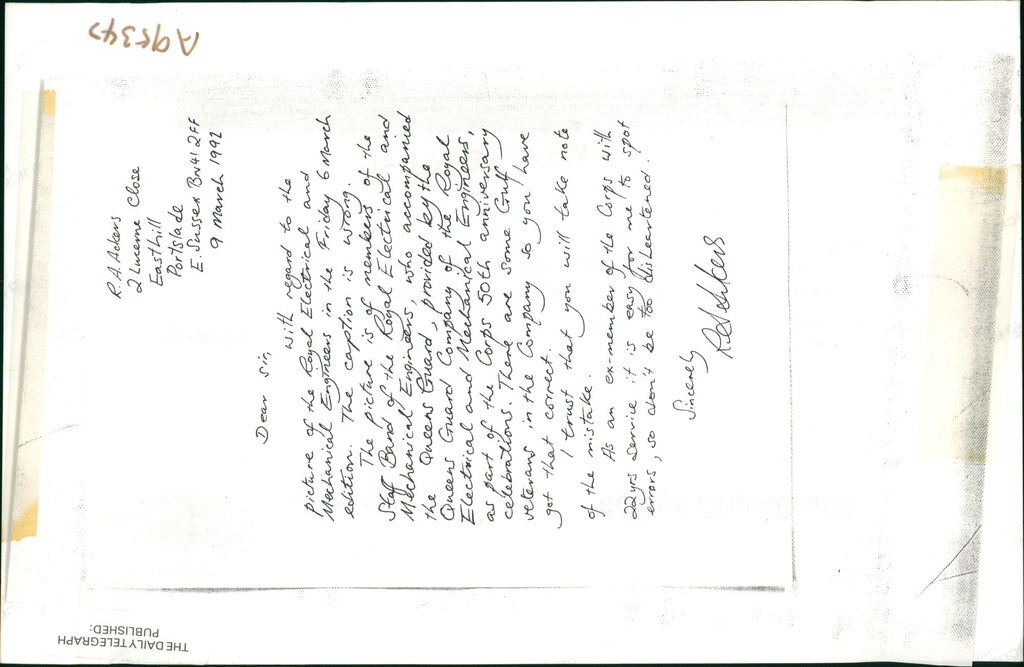 A95342
R.A. Ackers
2 Lucerne Close
Easthill
Portslade
E. Sussex BN41 2FF
9 March 1992
Dear Sir,
With regard to the
picture of the Royal Electrical and
Mechanical Engineers in the Friday 6 March
edition. The caption is wrong.
The picture is of members of the
Staff Band of the Royal Electrical and
Mechanical Engineers, who accompanied
the Queens Guard, provided by the
Queens Guard Company of the Royal
Electrical and Mechanical Engineers,
as part of the Corps 50th anniversary
celebrations. There are some Gulf
veterans in the Company so you have
got that correct.
I trust that you will take note
of the mistake.
As an ex-member of the Corps with
22yrs service it is easy for me to spot
errors, so don't be too disheartened.
Sincerely
RAAckers
THE DAILY TELEGRAPH
PUBLISHED: